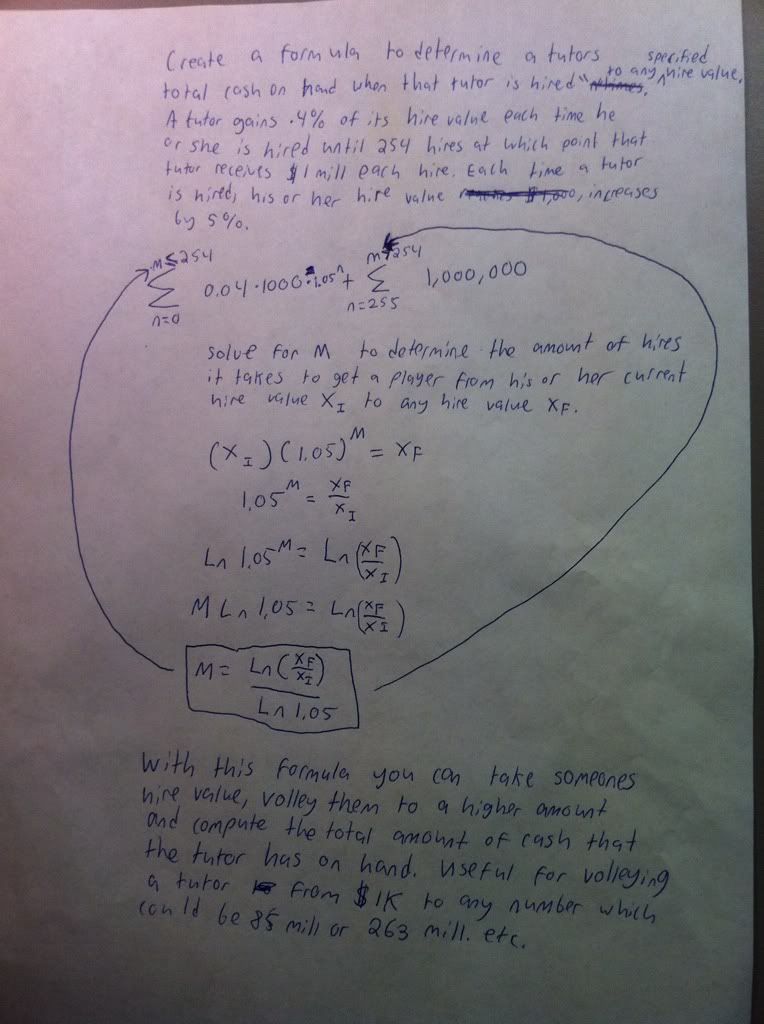 Create a formula to determine a tutors specified
total cash on hand when that tutor is hired to any hire value.
A tutor gains .4% of its hire value each time he
or she is hired until 254 hires at which point that
tutor receives $1 mill each hire. Each time a tutor
is hired, his or her hire value increases
by 5%.
M≤254 M>254
∑ 0.04·1000·1.05ⁿ + ∑ 1,000,000
n=0 n=255
solve for M to determine the amount of hires
it takes to get a player from his or her current
hire value X_I to any hire value X_F.
(X_I)(1.05)^M = X_F
1.05^M = X_F/X_I
Ln 1.05^M = Ln(X_F/X_I)
M Ln 1.05 = Ln(X_F/X_I)
M = Ln(X_F/X_I)
Ln 1.05
With this formula you can take someones
hire value, volley them to a higher amount
and compute the total amount of cash that
the tutor has on hand. Useful for volleying
a tutor from $1K to any number which
could be 85 mill or 263 mill. etc.